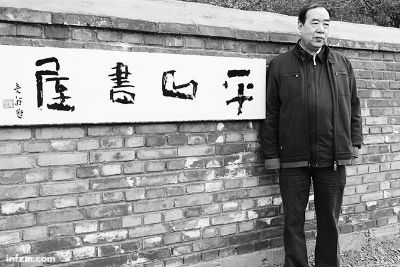 平山書屋
infzm.com